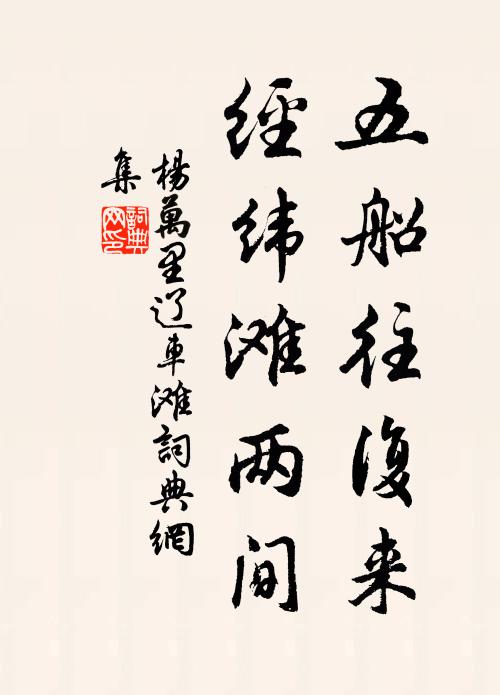 五船往復来
經纬滩两间
楊萬里辽車滩詞典網
集
詞典网印